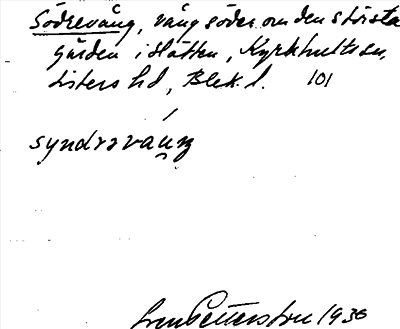 Södrevång, vång söder om den största
gården i Slätten, Kyrkhults sn,
Listers hd, Blek. l. 101
syndrəvaŋ
Sven Pettersson 1936